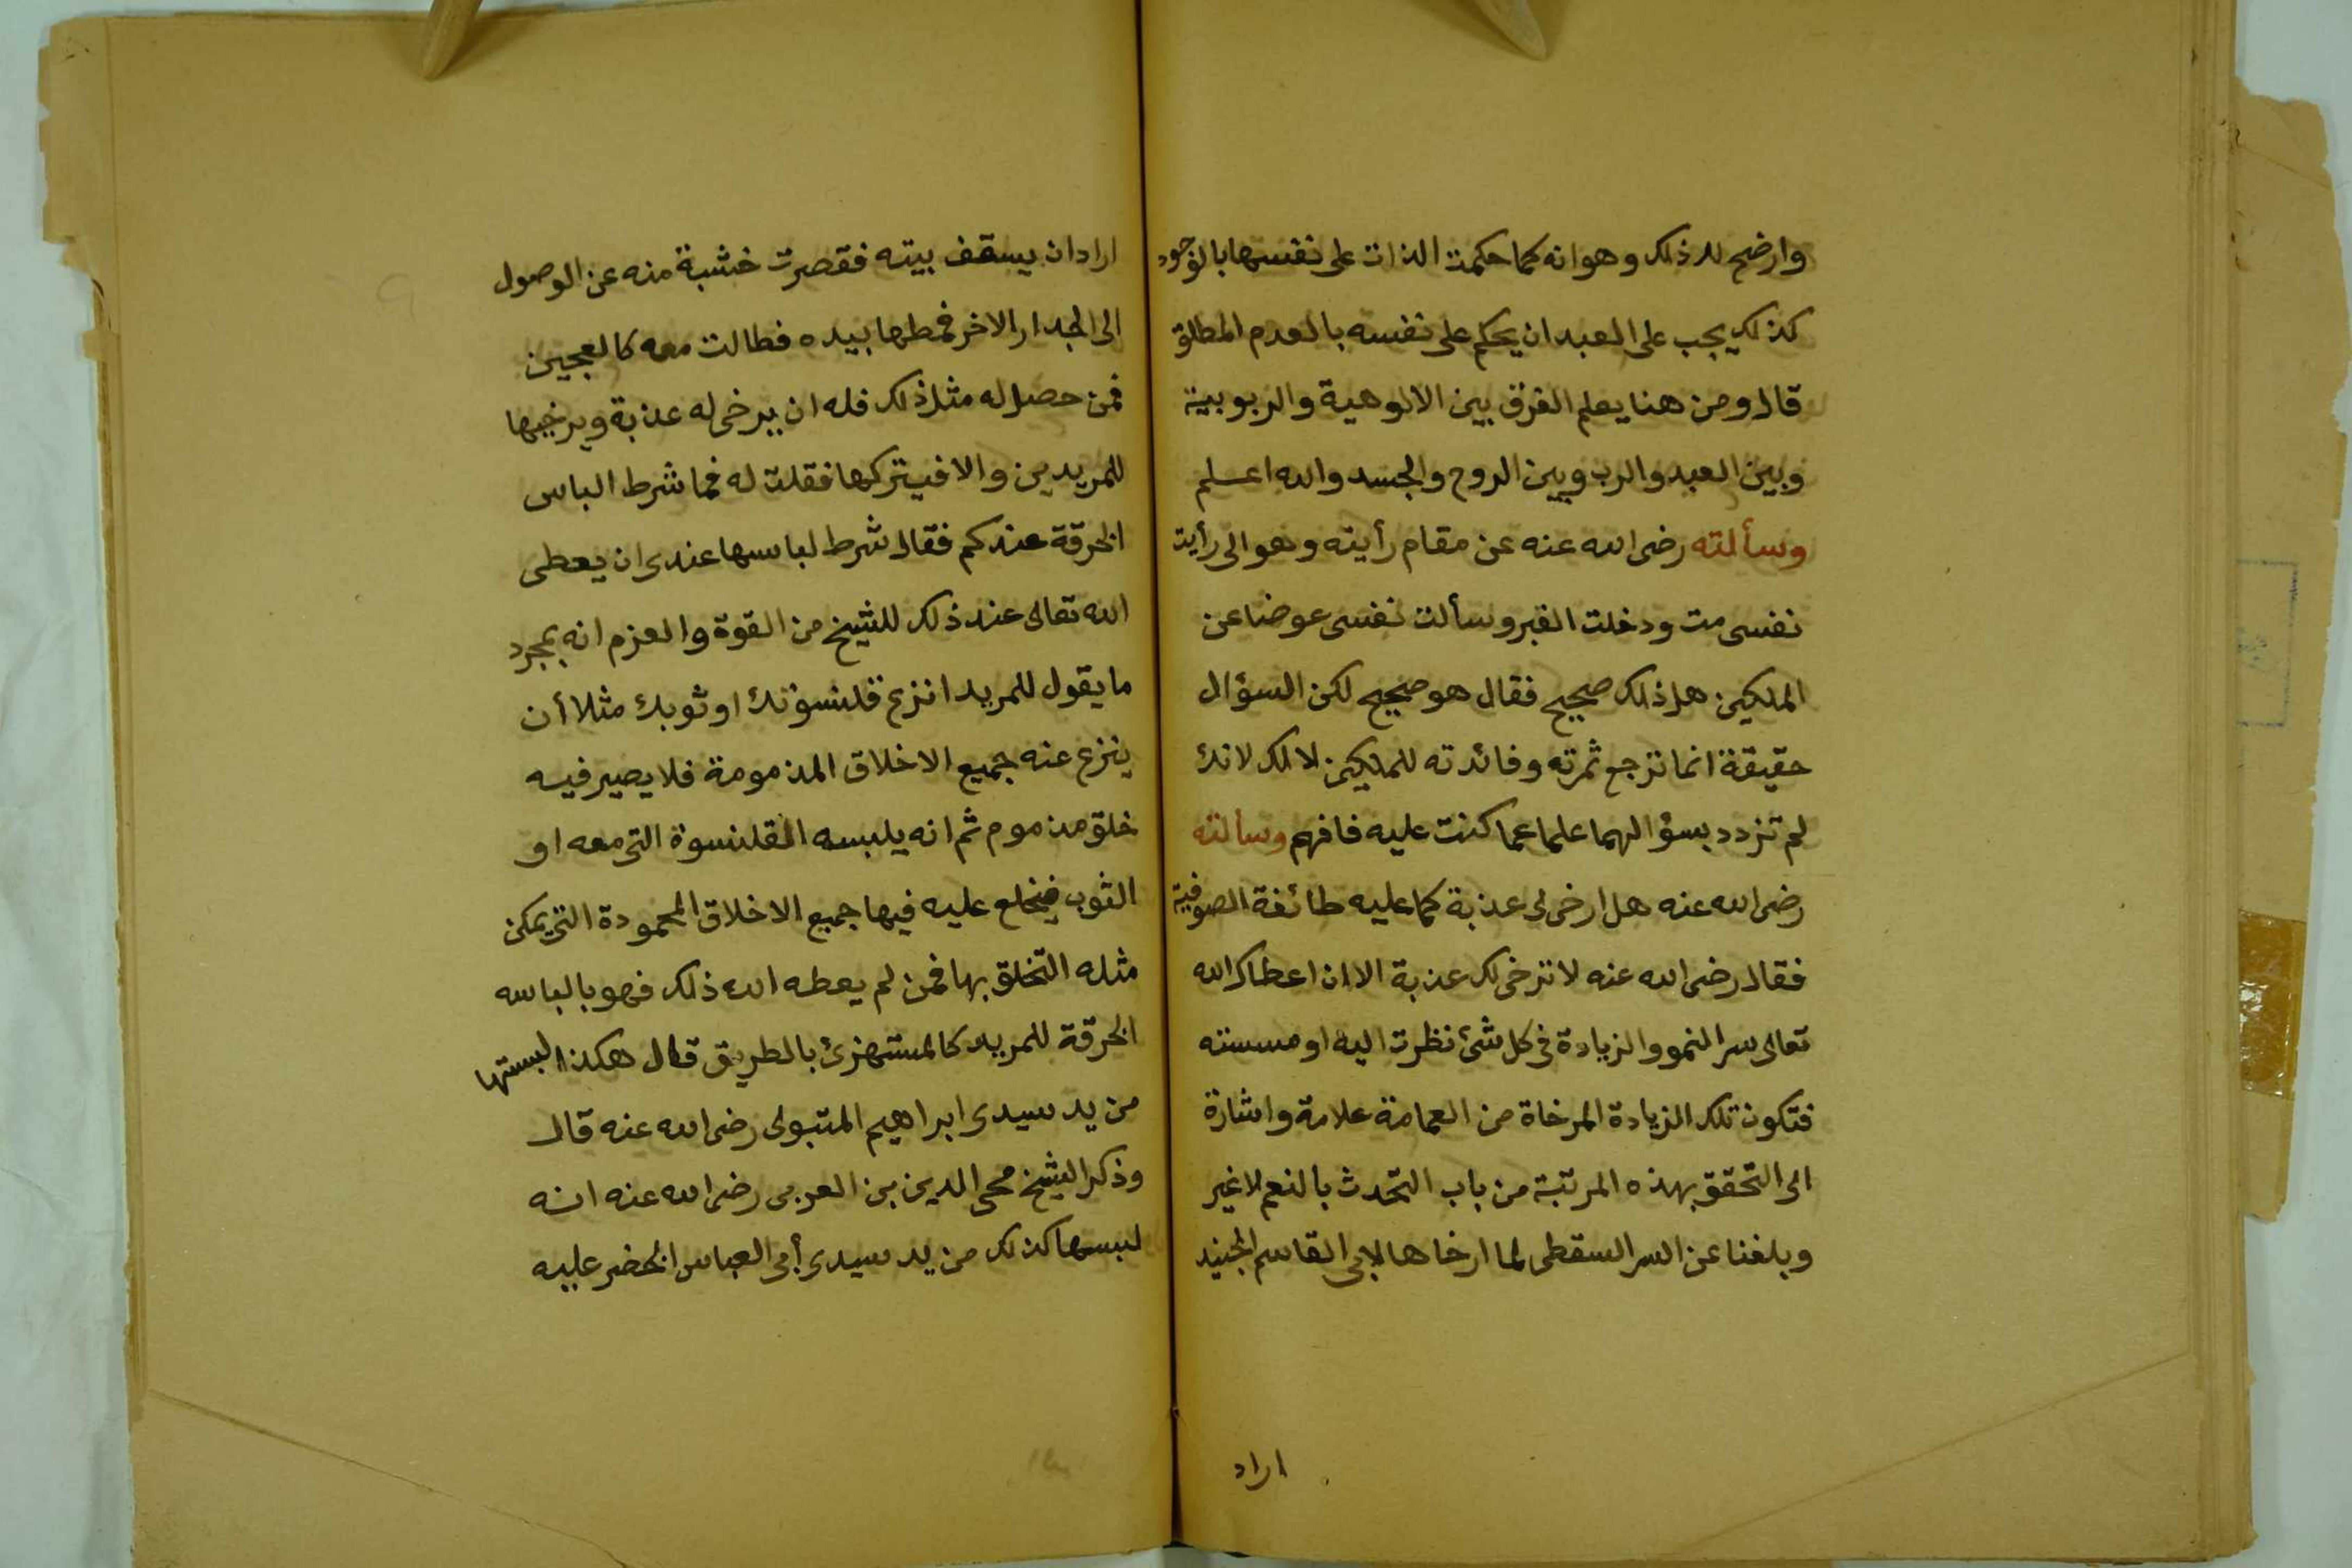 وارضح لك ذلك وهو انه كما حكمت الذات على نفسها بالوجود
كذلك يجب على العبد ان يحكم على نفسه بالعدم المطلق
قال ومن هنا يعلم الفرق بين الالوهية والربوبية
وبين العبد والرب وبين الروح والجسد والله اعلم
وسألته رضى الله عنه عن مقام رأيته وهو انى رأيت
نفسى مت ودخلت القبر وسألت نفسى عوضا عن
الملكين هل ذلك صحيح فقال هو صحيح لكن السؤال
حقيقة انما ترجع ثمرته وفائدته للملكين لا لك لانك
لم تزدد بسؤالهما علما عما كنت عليه فافهم وسالته
رضى الله عنه هل ارخى لى عذبة كما عليه طائفة الصوفية
فقال رضى الله عنه لا ترخى لك عذبة الا ان اعطاك الله
تعالى سر النمو والزيادة فى كل شئ نظرت اليه او مسسته
فتكون تلك الزيادة المرخاة من العمامة علامة واشارة
الى التحقق بهذه المرتبة من باب التحدث بالنعم لا غير
وبلغنا عن السر السقطى لما ارخاها لابى القاسم الجنيد
اراد
اراد ان يسقف بيته فقصرت خشبة منه عن الوصول
الى الجدار الاخر فمطها بيده فطالت معه كالعجين
فمن حصل له مثل ذلك فله ان يرخى له عذبة ويرخيها
للمريدين والا فيتركها فقلت له فما شرط الباس
الخرقة عندكم فقال شرط لباسها عندى ان يعطى
الله تعالى عند ذلك للشيخ من القوة والعزم انه بمجرد
ما يقول للمريد انزع قلنسوتك او ثوبك مثلا أن
ينزع عنه جميع الاخلاق المذمومة فلا يصير فيه
خلق مذموم ثم انه يلبسه القلنسوة التى معه او
الثوب فيخلع عليه فيها جميع الاخلاق المحمودة التى يمكن
مثله التخلق بها فمن لم يعطه الله ذلك فهو بالباسه
الخرقة للمريد كالمستهزئ بالطريق قال هكذا البستها
من يد سيدى ابراهيم المتبولى رضى الله عنه قال
وذكر الشيخ محى الدين بن العربى رضى الله عنه انه
لبسها كذلك من يد سيدى أبى العباس الخضر عليه